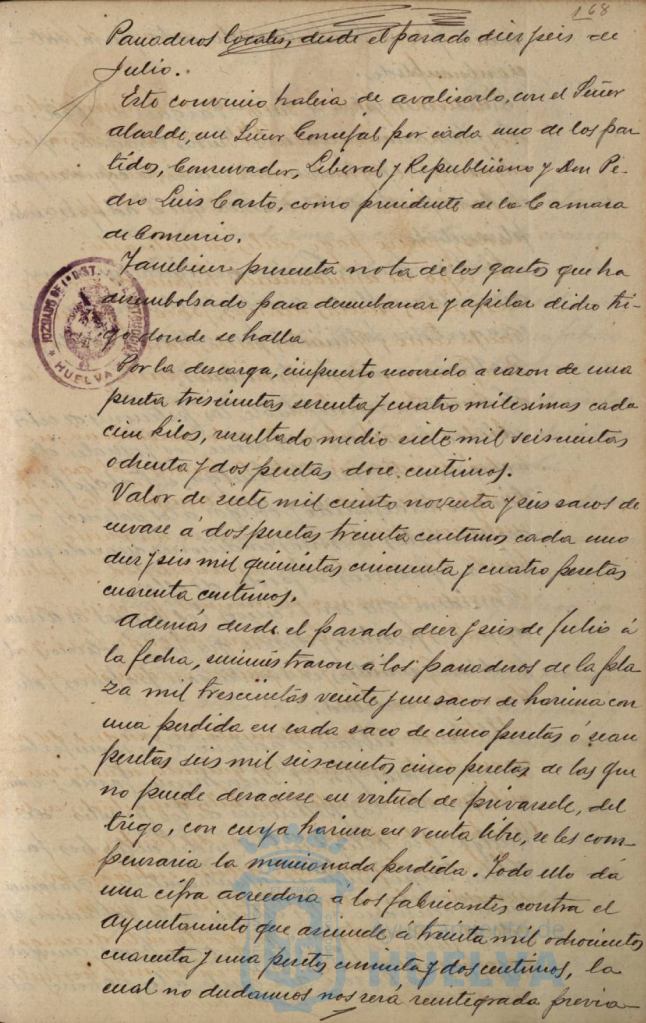 168
Panaderos locales, desde el pasado diez y seis de
Julio.
Esto convenio habria de avalisarlo, con el Señor
alcalde, un Señor Concejal por cada uno de los par-
tidos, Conservador, Liberal y Republicano y Don Pe-
dro Luis Casto, como presidente de la Camara
de Comercio.
Tambien presenta nota de los gastos que ha
desembolsado para desembarcar y apilar dicho tri-
go, donde se halla
Por la descarga, impuesto recorrido a razon de una
peseta trescientas setenta y cuatro milesimas cada
cien kilos, resultado medio siete mil seiscientas
ochenta y dos pesetas doce centimos.
Valor de siete mil ciento noventa y seis sacos de
envase á dos pesetas treinta centimos cada uno
diez y seis mil quinientas cincuenta y cuatro pesetas
cuarenta centimos.
Además desde el pasado diez y seis de Julio á
la fecha, suministraron á los panaderos de la pla-
za mil trescientos veinte y un sacos de harina con
una perdida en cada saco de cinco pesetas ó sean
pesetas seis mil seiscientos cinco pesetas de las que
no puede desacirse en virtud de privarsele, del
trigo, con cuya harina en venta libre, se les com-
pensaria la mencionada perdida. Todo ello dá
una cifra acreedora á los fabricantes contra el
Ayuntamiento que asciende á treinta mil ochocientos
cuarenta y una pesetas cincuenta y dos centimos, la
cual no dudamos nos será reintegrada previa-
JUZGADO DE 1ª
HUELVA
Ayuntamiento de
HUELVA